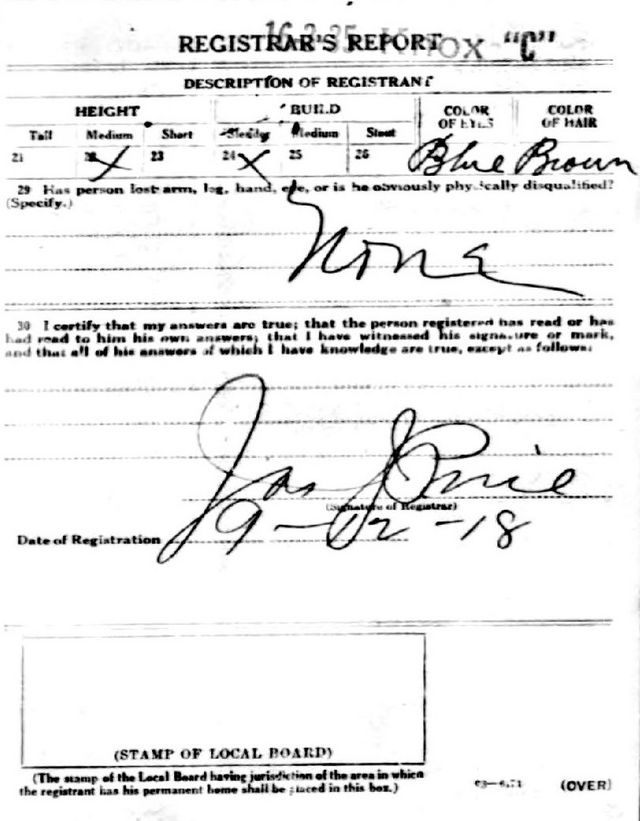 REGISTRAR'S REPORT
16-3-35 Knox "C"
DESCRIPTION OF REGISTRANT
HEIGHT BUILD COLOR OF EYES COLOR OF HAIR
Tall Medium Short Slender Medium Stout
21 22 X 23 24 X 25 26 Blue Brown
29 Has person lost arm, leg, hand, eye, or is he obviously physically disqualified?
(Specify.)
None
30 I certify that my answers are true; that the person registered has read or has
had read to him his own answers; that I have witnessed his signature or mark,
and that all of his answers of which I have knowledge are true, except as follows:
Jas J
(Signature of Registrar)
Date of Registration 9-12-18
(STAMP OF LOCAL BOARD)
(The stamp of the Local Board having jurisdiction of the area in which
the registrant has his permanent home shall be placed in this box.)
(OVER)